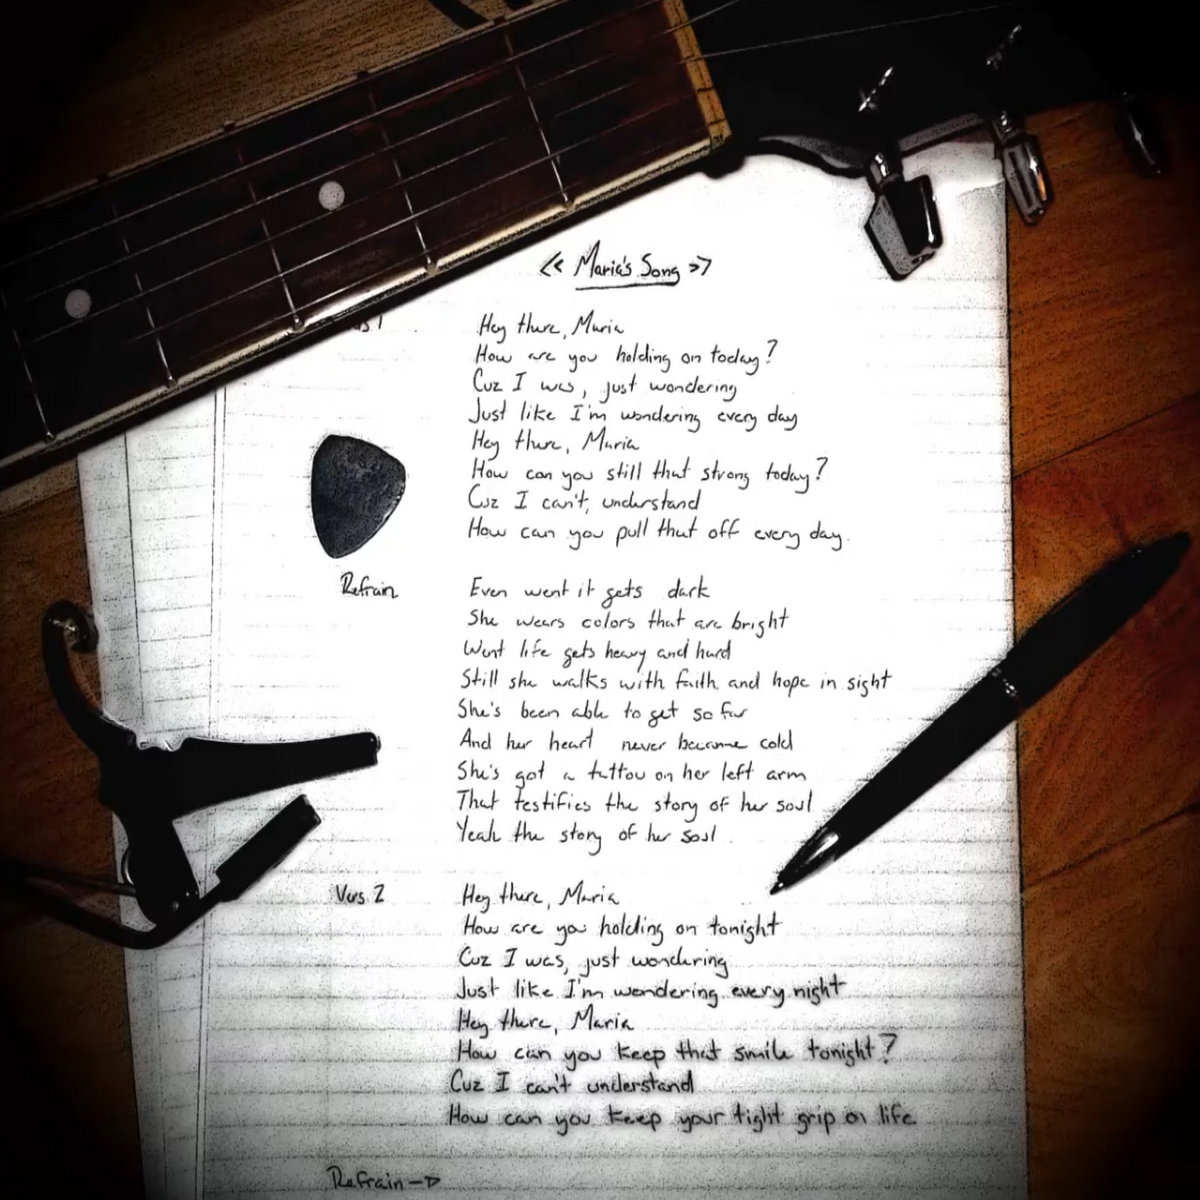 << Maria's Song >>
Hey there, Maria
How are you holding on today?
Cuz I was, just wondering
Just like I'm wondering every day
Hey there, Maria
How can you still that strong today?
Cuz I can't, understand
How can you pull that off every day.
Refrain
Even went it gets dark
She wears colors that are bright
Went life gets heavy and hard
Still she walks with faith and hope in sight
She's been able to get so far
And her heart never become cold
She's got a tattou on her left arm
That testifies the story of her soul
Yeah the story of her soul
Vers. 2
Hey there, Maria
How are you holding on tonight
Cuz I was, just wondering
Just like I'm wondering every night
Hey there, Maria
How can you keep that smile tonight?
Cuz I can't understand
How can you keep your tight grip on life
Refrain →